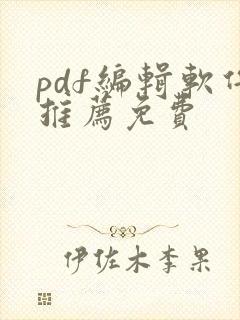 pdf編輯軟件
推薦免費
伊佐木李果